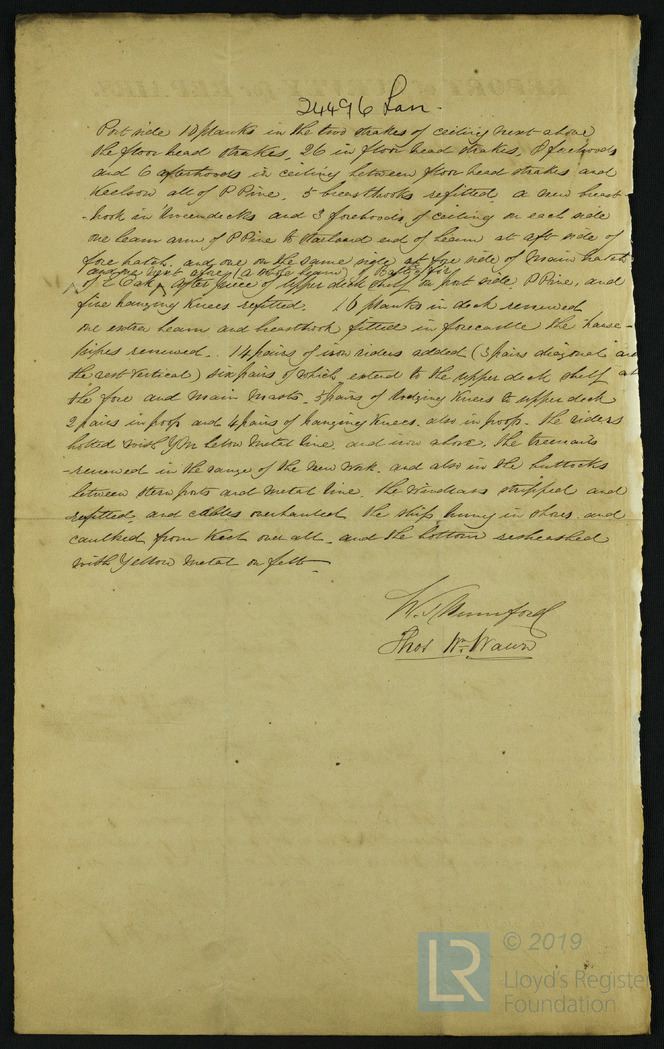 24496 Lon.
Port side 10 planks in the two strakes of ceiling next above
the floor head strakes, 26 in floor head strakes, 8 forehoods
and 6 afterhoods in ceiling between floor head strakes and
keelson all of P Pine. 5 breasthooks refitted, a new breast
-hook in tweendecks and 3 forehoods of ceiling on each side
one beam arm of P Pine to starboard end of beam at aft side of
fore hatch, and one on the same side at fore side of main hatch
and one next afore (a whole beam) of Baltic fir
of E Oak, after piece of upper deck shelf on port side P Pine, and
five hanging knees refitted. 16 planks in deck renewed
one extra beam and breasthook fitted in forecastle the hawse-
pipes renewed. 14 pairs of iron riders added (3 pairs diagonal and
the rest vertical) six pairs of which extend to the upper deck shelf at
the fore and main masts. 5 pairs of lodging knees to upper deck
2 pairs in poop and 4 pairs of hanging knees also in poop. the riders
bolted with YM below metal line, and iron above. the treenails
-renewed in the range of the new work. and also in the buttocks
between stern ports and metal line. the windlass stripped and
refitted, and cables overhauled the ship hung in shores and
caulked from keel over all. and the bottom resheathed
with yellow metal on felt
W. J. Mumford
Thos Wm. Wawn
© 2019
Lloyd's Register
Foundation
LR